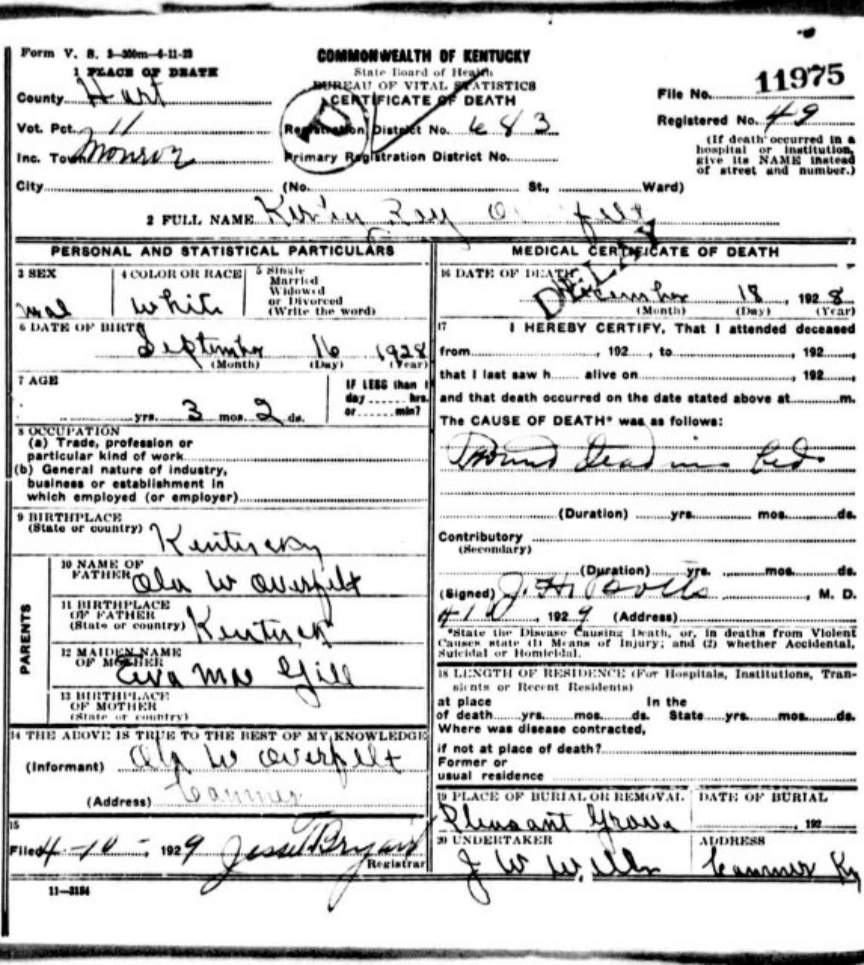 Form V. S. 3-300m-6-11-23
COMMONWEALTH OF KENTUCKY
State Board of Health
BUREAU OF VITAL STATISTICS
CERTIFICATE OF DEATH
1 PLACE OF DEATH
County Hart
Vot. Pct. 11
Inc. Town Monroe
City
Registration District No. 683
Primary Registration District No.
(No. St., Ward)
File No. 11975
Registered No. 49
(If death occurred in a
hospital or institution,
give its NAME instead
of street and number.)
2 FULL NAME Ray
DELAY
PERSONAL AND STATISTICAL PARTICULARS
3 SEX
mal
4 COLOR OR RACE
White
5 Single
Married
Widowed
or Divorced
(Write the word)
6 DATE OF BIRTH
September 16 1928
(Month) (Day) (Year)
7 AGE
yrs. 3 mos. 2 ds.
IF LESS than 1
day hrs.
or min?
8 OCCUPATION
(a) Trade, profession or
particular kind of work
(b) General nature of industry,
business or establishment in
which employed (or employer)
9 BIRTHPLACE
(State or country) Kentucky
PARENTS
10 NAME OF
FATHER Ola W Overfelt
11 BIRTHPLACE
OF FATHER
(State or country) Kentucky
12 MAIDEN NAME
OF MOTHER
Eva Mae Gill
13 BIRTHPLACE
OF MOTHER
(State or country)
14 THE ABOVE IS TRUE TO THE BEST OF MY KNOWLEDGE
(Informant) Ola W Overfelt
(Address) Canmer
15
Filed 4-10-, 1929 Jesse T Bryant
Registrar
11—3184
MEDICAL CERTIFICATE OF DEATH
16 DATE OF DEATH
December 18, 1928
(Month) (Day) (Year)
17 I HEREBY CERTIFY, That I attended deceased
from , 192 , to , 192
that I last saw h alive on , 192
and that death occurred on the date stated above at m.
The CAUSE OF DEATH* was as follows:
Found Dead in Bed
(Duration) yrs. mos. ds.
Contributory
(Secondary)
(Duration) yrs. mos. ds.
(Signed) J. H. , M. D.
, 1929 (Address)
*State the Disease Causing Death, or, in deaths from Violent
Causes state (1) Means of Injury; and (2) whether Accidental,
Suicidal or Homicidal.
18 LENGTH OF RESIDENCE (For Hospitals, Institutions, Tran-
sients or Recent Residents)
at place In the
of death yrs. mos. ds. State yrs. mos. ds.
Where was disease contracted,
if not at place of death?
Former or
usual residence
19 PLACE OF BURIAL OR REMOVAL
Pleasant Grove
DATE OF BURIAL
, 192
20 UNDERTAKER
J W
ADDRESS
Canmer Ky